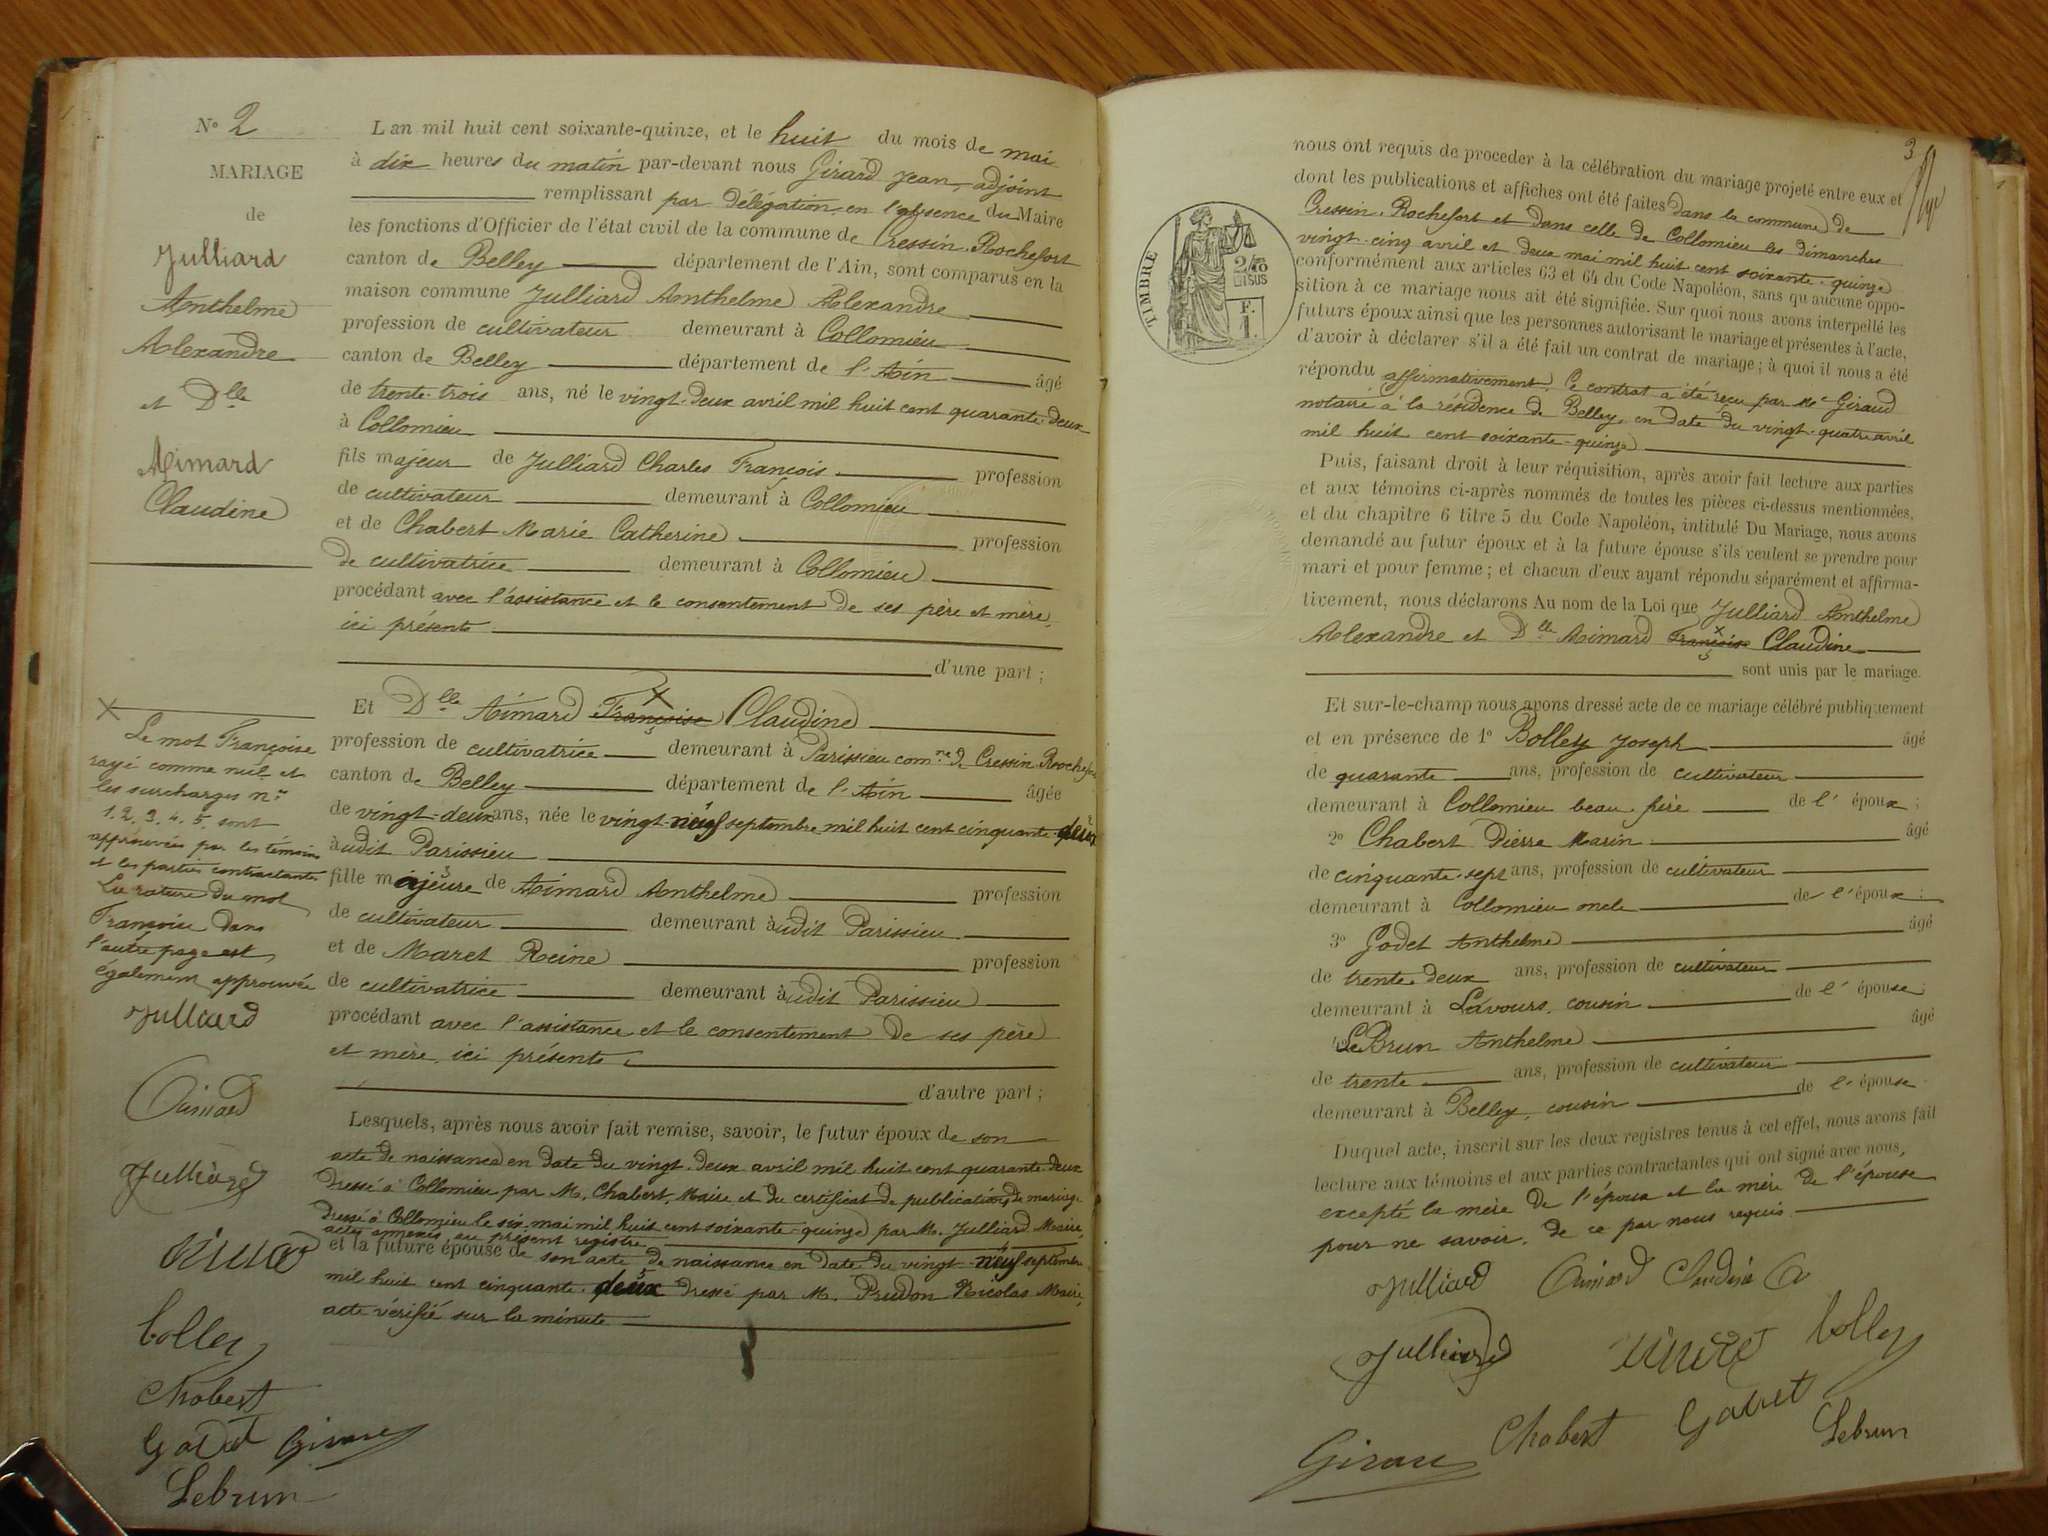 N° 2
MARIAGE
de
Julliard
Anthelme
Alexandre
et Dlle
Aimard
Claudine
L an mil huit cent soixante-quinze, et le huit du mois de mai
à dix heures du matin par-devant nous Girard Jean, adjoint
remplissant par délégation, en l'absence du Maire
les fonctions d'Officier de l'état civil de la commune de Cressin-Rochefort
canton de Belley département de l'Ain, sont comparus en la
maison commune Julliard Anthelme Alexandre
profession de cultivateur demeurant à Collomieu
canton de Belley département de l'Ain âgé
de trente-trois ans, né le vingt-deux avril mil huit cent quarante-deux
à Collomieu
fils majeur de Julliard Charles François profession
de cultivateur demeurant à Collomieu
et de Chabert Marie Catherine profession
de cultivatrice demeurant à Collomieu
procédant avec l'assistance et le consentement de ses père et mère,
ici présents
d'une part ;
Et Dlle Aimard Françoise Claudine
profession de cultivatrice demeurant à Parissieu comne de Cressin-Rochefort
canton de Belley département de l'Ain âgée
de vingt-deux ans, née le vingt-neuf septembre mil huit cent cinquante-deux
àudit Parissieu
fille majeure de Aimard Anthelme profession
de cultivateur demeurant àudit Parissieu
et de Maret Reine profession
de cultivatrice demeurant àudit Parissieu
procédant avec l'assistance et le consentement de ses père
et mère, ici présents
d'autre part ;
Lesquels, après nous avoir fait remise, savoir, le futur époux de son
acte de naissance en date du vingt-deux avril mil huit cent quarante-deux
dressé à Collomieu par M. Chabert, Maire et du certificat de publications de mariage
dressé à Collomieu le six mai mil huit cent soixante-quinze par M. Julliard Maire,
actes annexés au présent registre
et la future épouse de son acte de naissance en date du vingt-neuf septembre
mil huit cent cinquante-deux dressé par M. Prudon Nicolas Maire,
acte vérifié sur la minute
X
Le mot Françoise
rayé comme nul et
les surcharges nos
1. 2. 3. 4. 5. sont
approuvées par les témoins
et les parties contractantes
La rature du mot
Françoise dans
l'autre page est
également approuvée
Julliard
Aimard
Julliard
Bolley
Chabert
Godet Girard
Lebrun
3
nous ont requis de proceder à la célébration du mariage projeté entre eux et
dont les publications et affiches ont été faites dans la commune de
Cressin-Rochefort et dans celle de Collomieu les dimanches
vingt-cinq avril et deux mai mil huit cent soixante-quinze
conformément aux articles 63 et 64 du Code Napoléon, sans qu aucune oppo-
sition à ce mariage nous ait été signifiée. Sur quoi nous avons interpellé les
futurs époux ainsi que les personnes autorisant le mariage et présentes à l'acte,
d'avoir à déclarer s'il a été fait un contrat de mariage ; à quoi il nous a été
répondu affirmativement. Ce contrat a été reçu par Me Giraud
notaire à la résidence de Belley, en date du vingt-quatre avril
mil huit cent soixante-quinze
TIMBRE
2/10
EN SUS
F.
1.
Puis, faisant droit à leur réquisition, après avoir fait lecture aux parties
et aux témoins ci-après nommés de toutes les pièces ci-dessus mentionnées,
et du chapitre 6 titre 5 du Code Napoléon, intitulé Du Mariage, nous avons
demandé au futur époux et à la future épouse s'ils veulent se prendre pour
mari et pour femme ; et chacun d'eux ayant répondu séparément et affirma-
tivement, nous déclarons Au nom de la Loi que Julliard Anthelme
Alexandre et Dlle Aimard Françoise Claudine
sont unis par le mariage.
Et sur-le-champ nous avons dressé acte de ce mariage célébré publiquement
et en présence de 1° Bolley Joseph âgé
de quarante ans, profession de cultivateur
demeurant à Collomieu beau-frère de l'époux ;
2° Chabert Pierre Marin âgé
de cinquante-sept ans, profession de cultivateur
demeurant à Collomieu oncle de l'époux ;
3° Godet Anthelme âgé
de trente-deux ans, profession de cultivateur
demeurant à Lavours, cousin de l'épouse ;
4° LeBrun Anthelme âgé
de trente ans, profession de cultivateur
demeurant à Belley, cousin de l'épouse
Duquel acte, inscrit sur les deux registres tenus à cet effet, nous avons fait
lecture aux témoins et aux parties contractantes qui ont signé avec nous,
excepté la mère de l'époux et la mère de l'épouse
pour ne savoir, de ce par nous requis.
Julliard Aimard Claudine
Julliard Bolley
Girard Chabert Godet
Lebrun